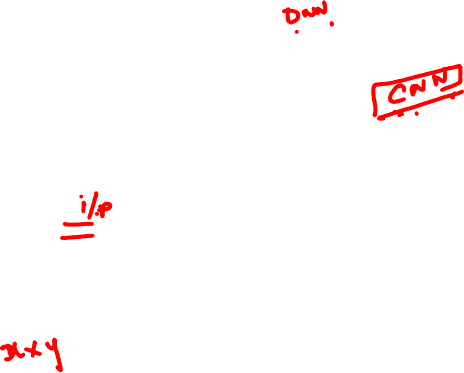 DNN
CNN
i/p
x x y